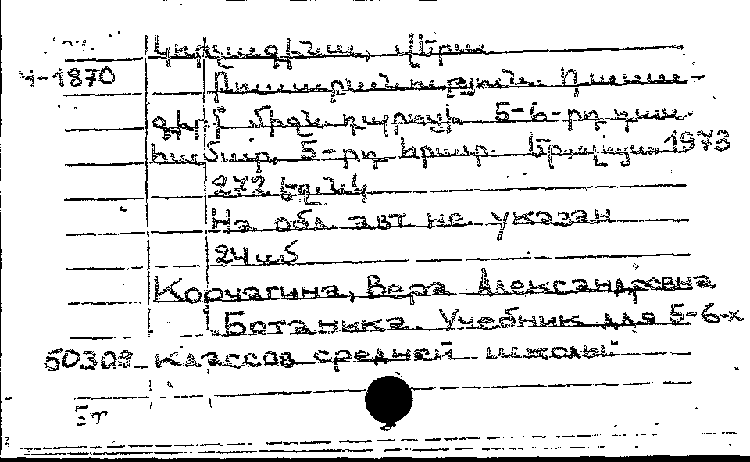 Կորչագինա, Վերա
Կ-1870
Բուսաբանություն. Դասա-
գիրք միջն. դպրոցի 5-6-րդ դաս.
համար. 5-րդ հրատ. Եր., Լույս, 1973
272 էջ. նկ.
На обл. авт. не указан
24 սմ
Корчагина, Вера Александровна
Ботаника. Учебник для 5-6-х
50309 классов средней школы